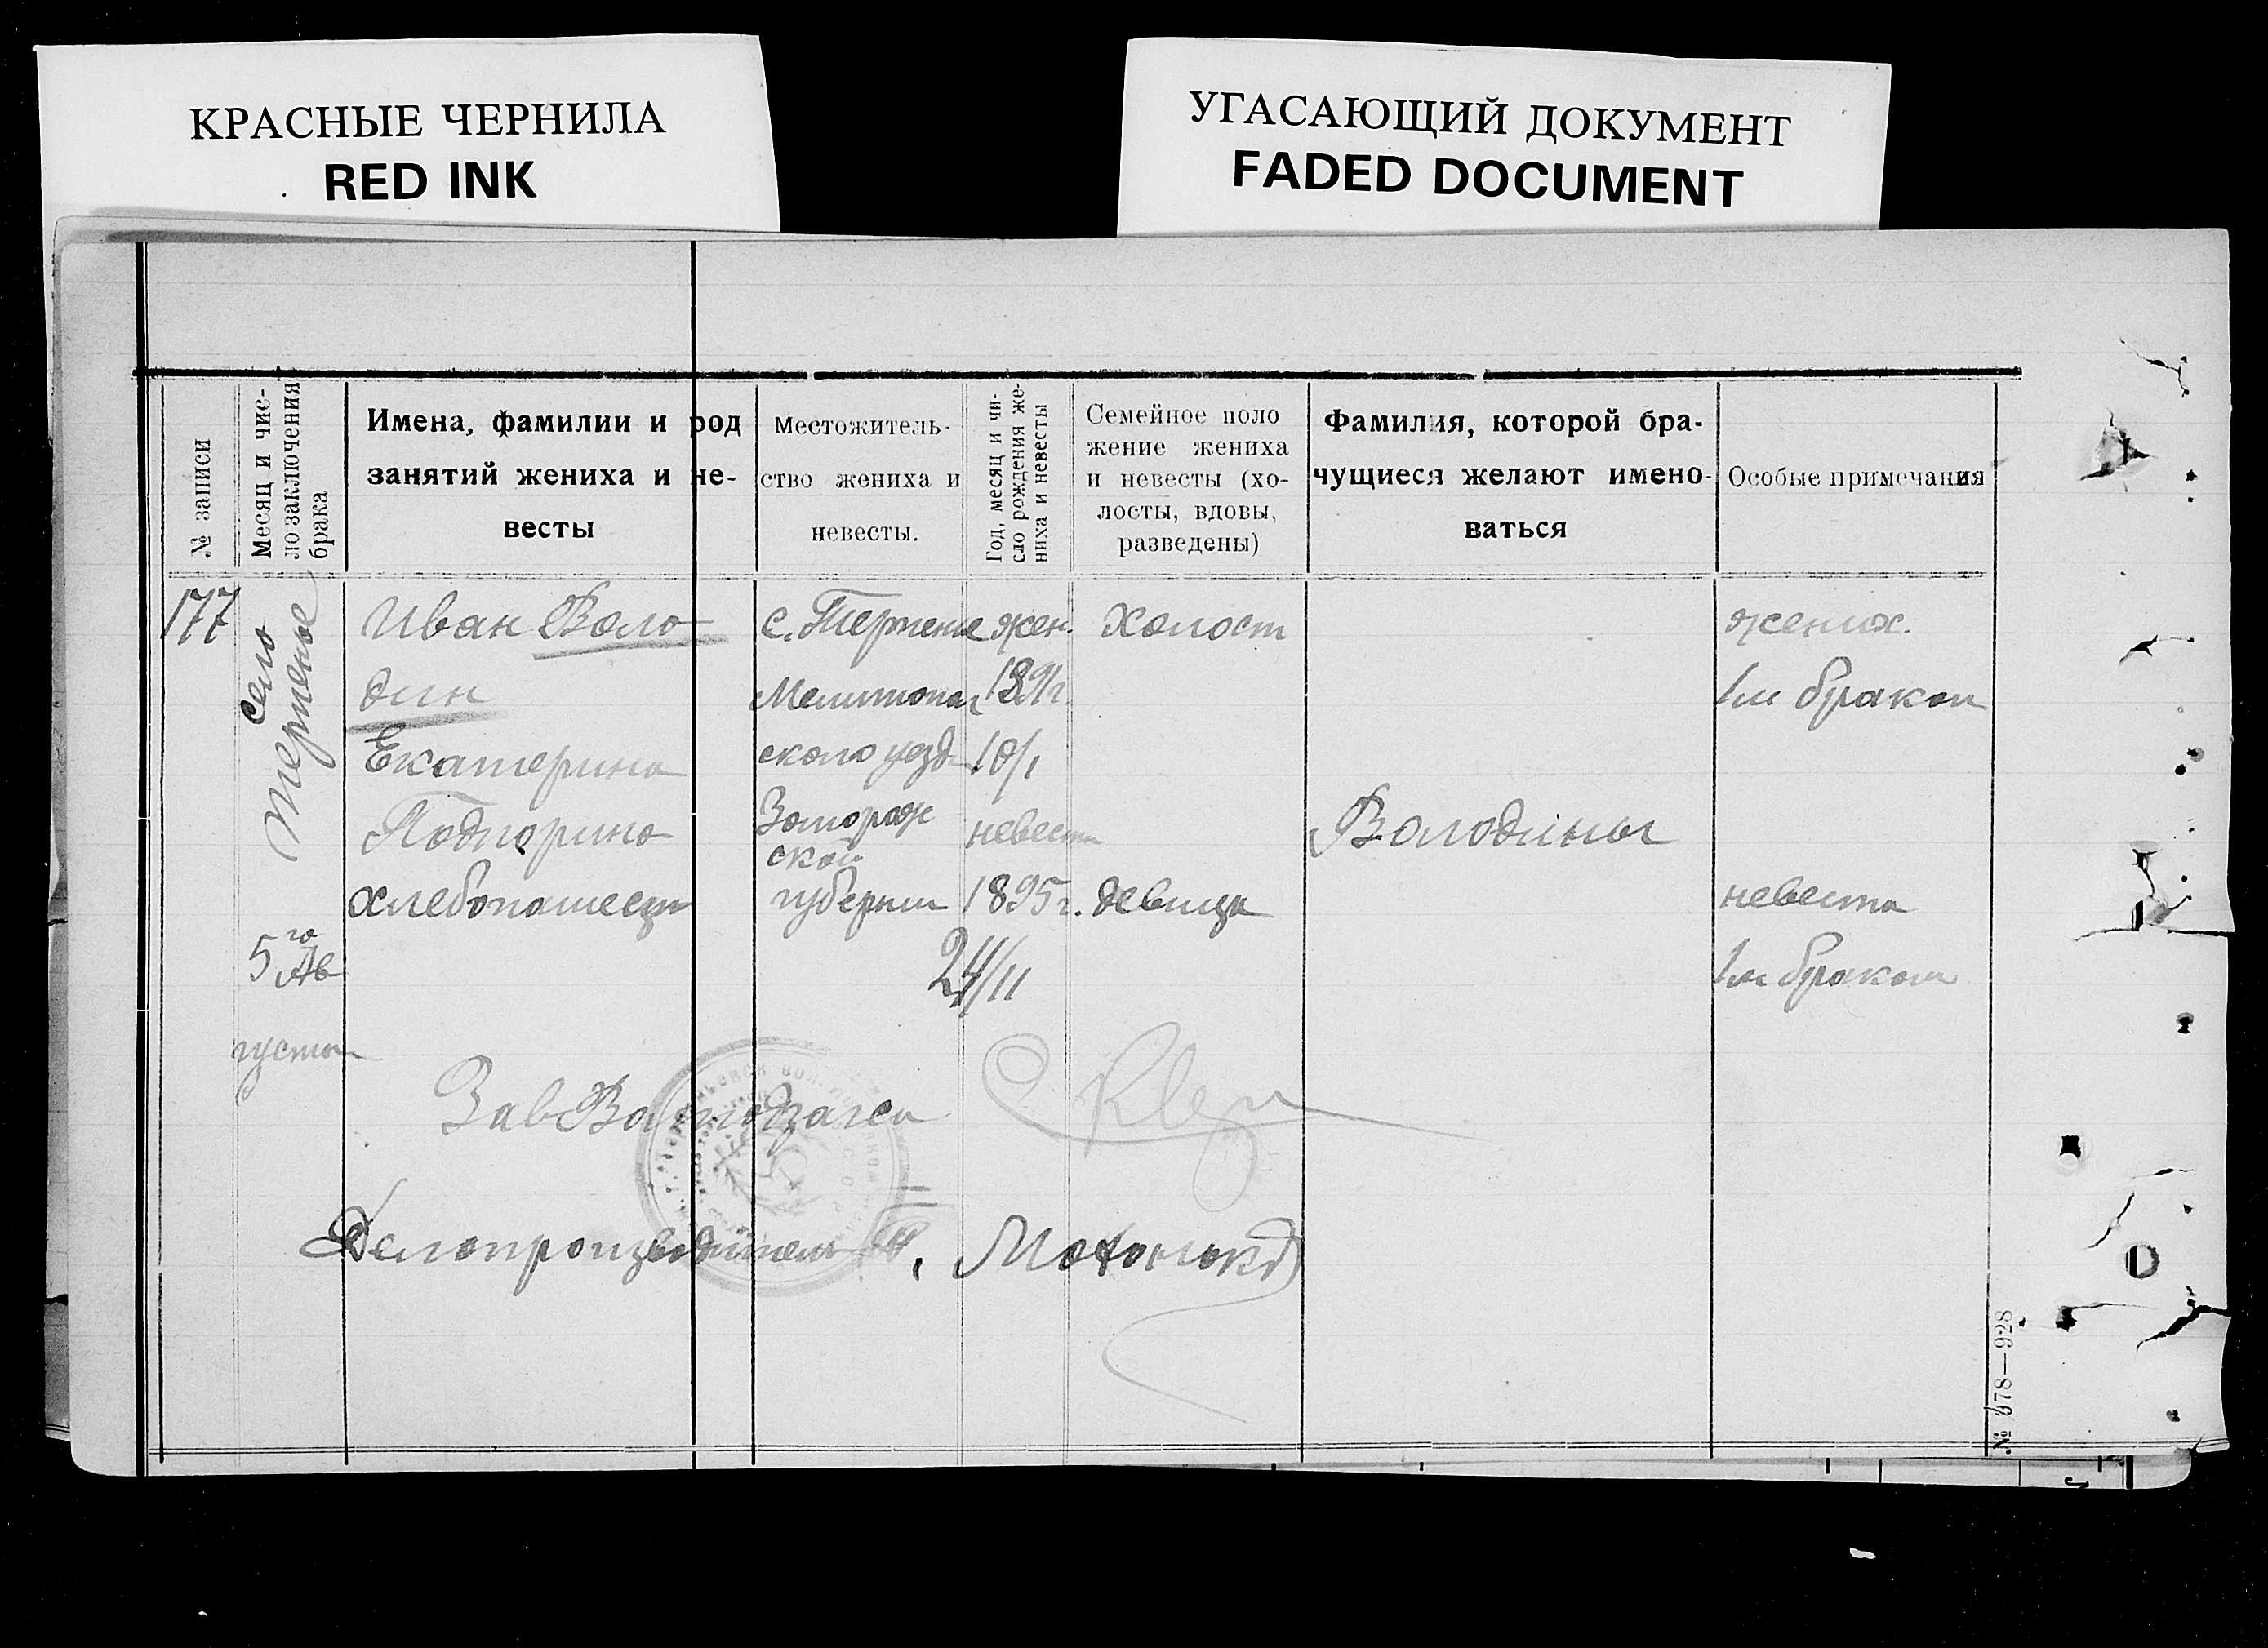 КРАСНЫЕ ЧЕРНИЛА
RED INK
УГАСАЮЩИЙ ДОКУМЕНТ
FADED DOCUMENT
№ записи
Месяц и чис-
ло заключения
брака
Имена, фамилии и род
занятий жениха и не-
весты
Местожитель-
ство жениха и
невесты.
Год, месяц и чи-
сло рождения же-
ниха и невесты
Семейное поло
жение жениха
и невесты (хо-
лосты, вдовы,
разведены)
Фамилия, которой бра-
чущиеся желают имено-
ваться
Особые примечания
177
село
Терпенье
5го Ав
густа
Иван Воло-
дин
Екатерина
Подпорина
хлебопашесцы
с. Терпенье
Мелитополь
ского уезд
Запорож
ской
губернии
жен.
1891г.
10/1
невеста
1895г.
24/11
Холост
девица
Володины
жених.
1м браком
невеста
1м браком
Зав
Делопроизводитель
№ 078—928